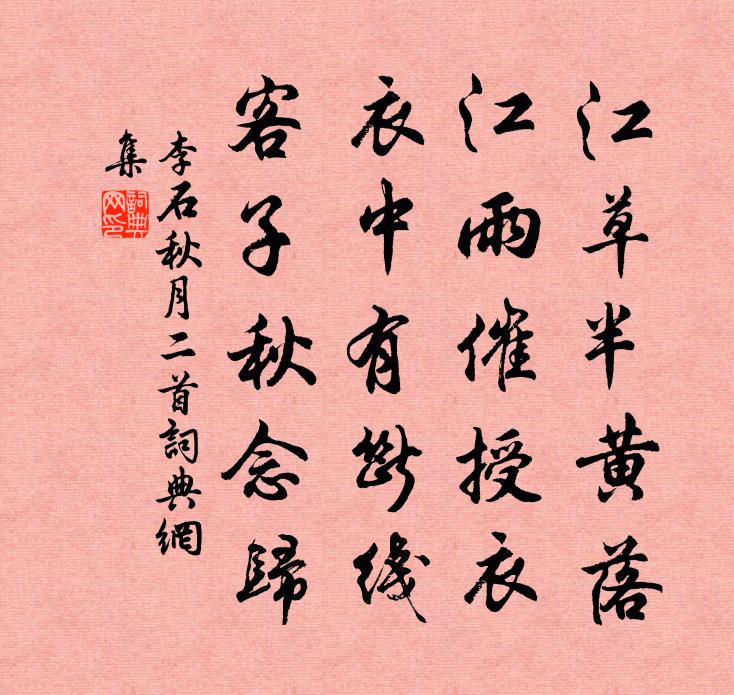 江草半黄落
江雨催授衣
衣中有断线
客子秋念歸
李石秋月二首詞典網
集
詞典网印